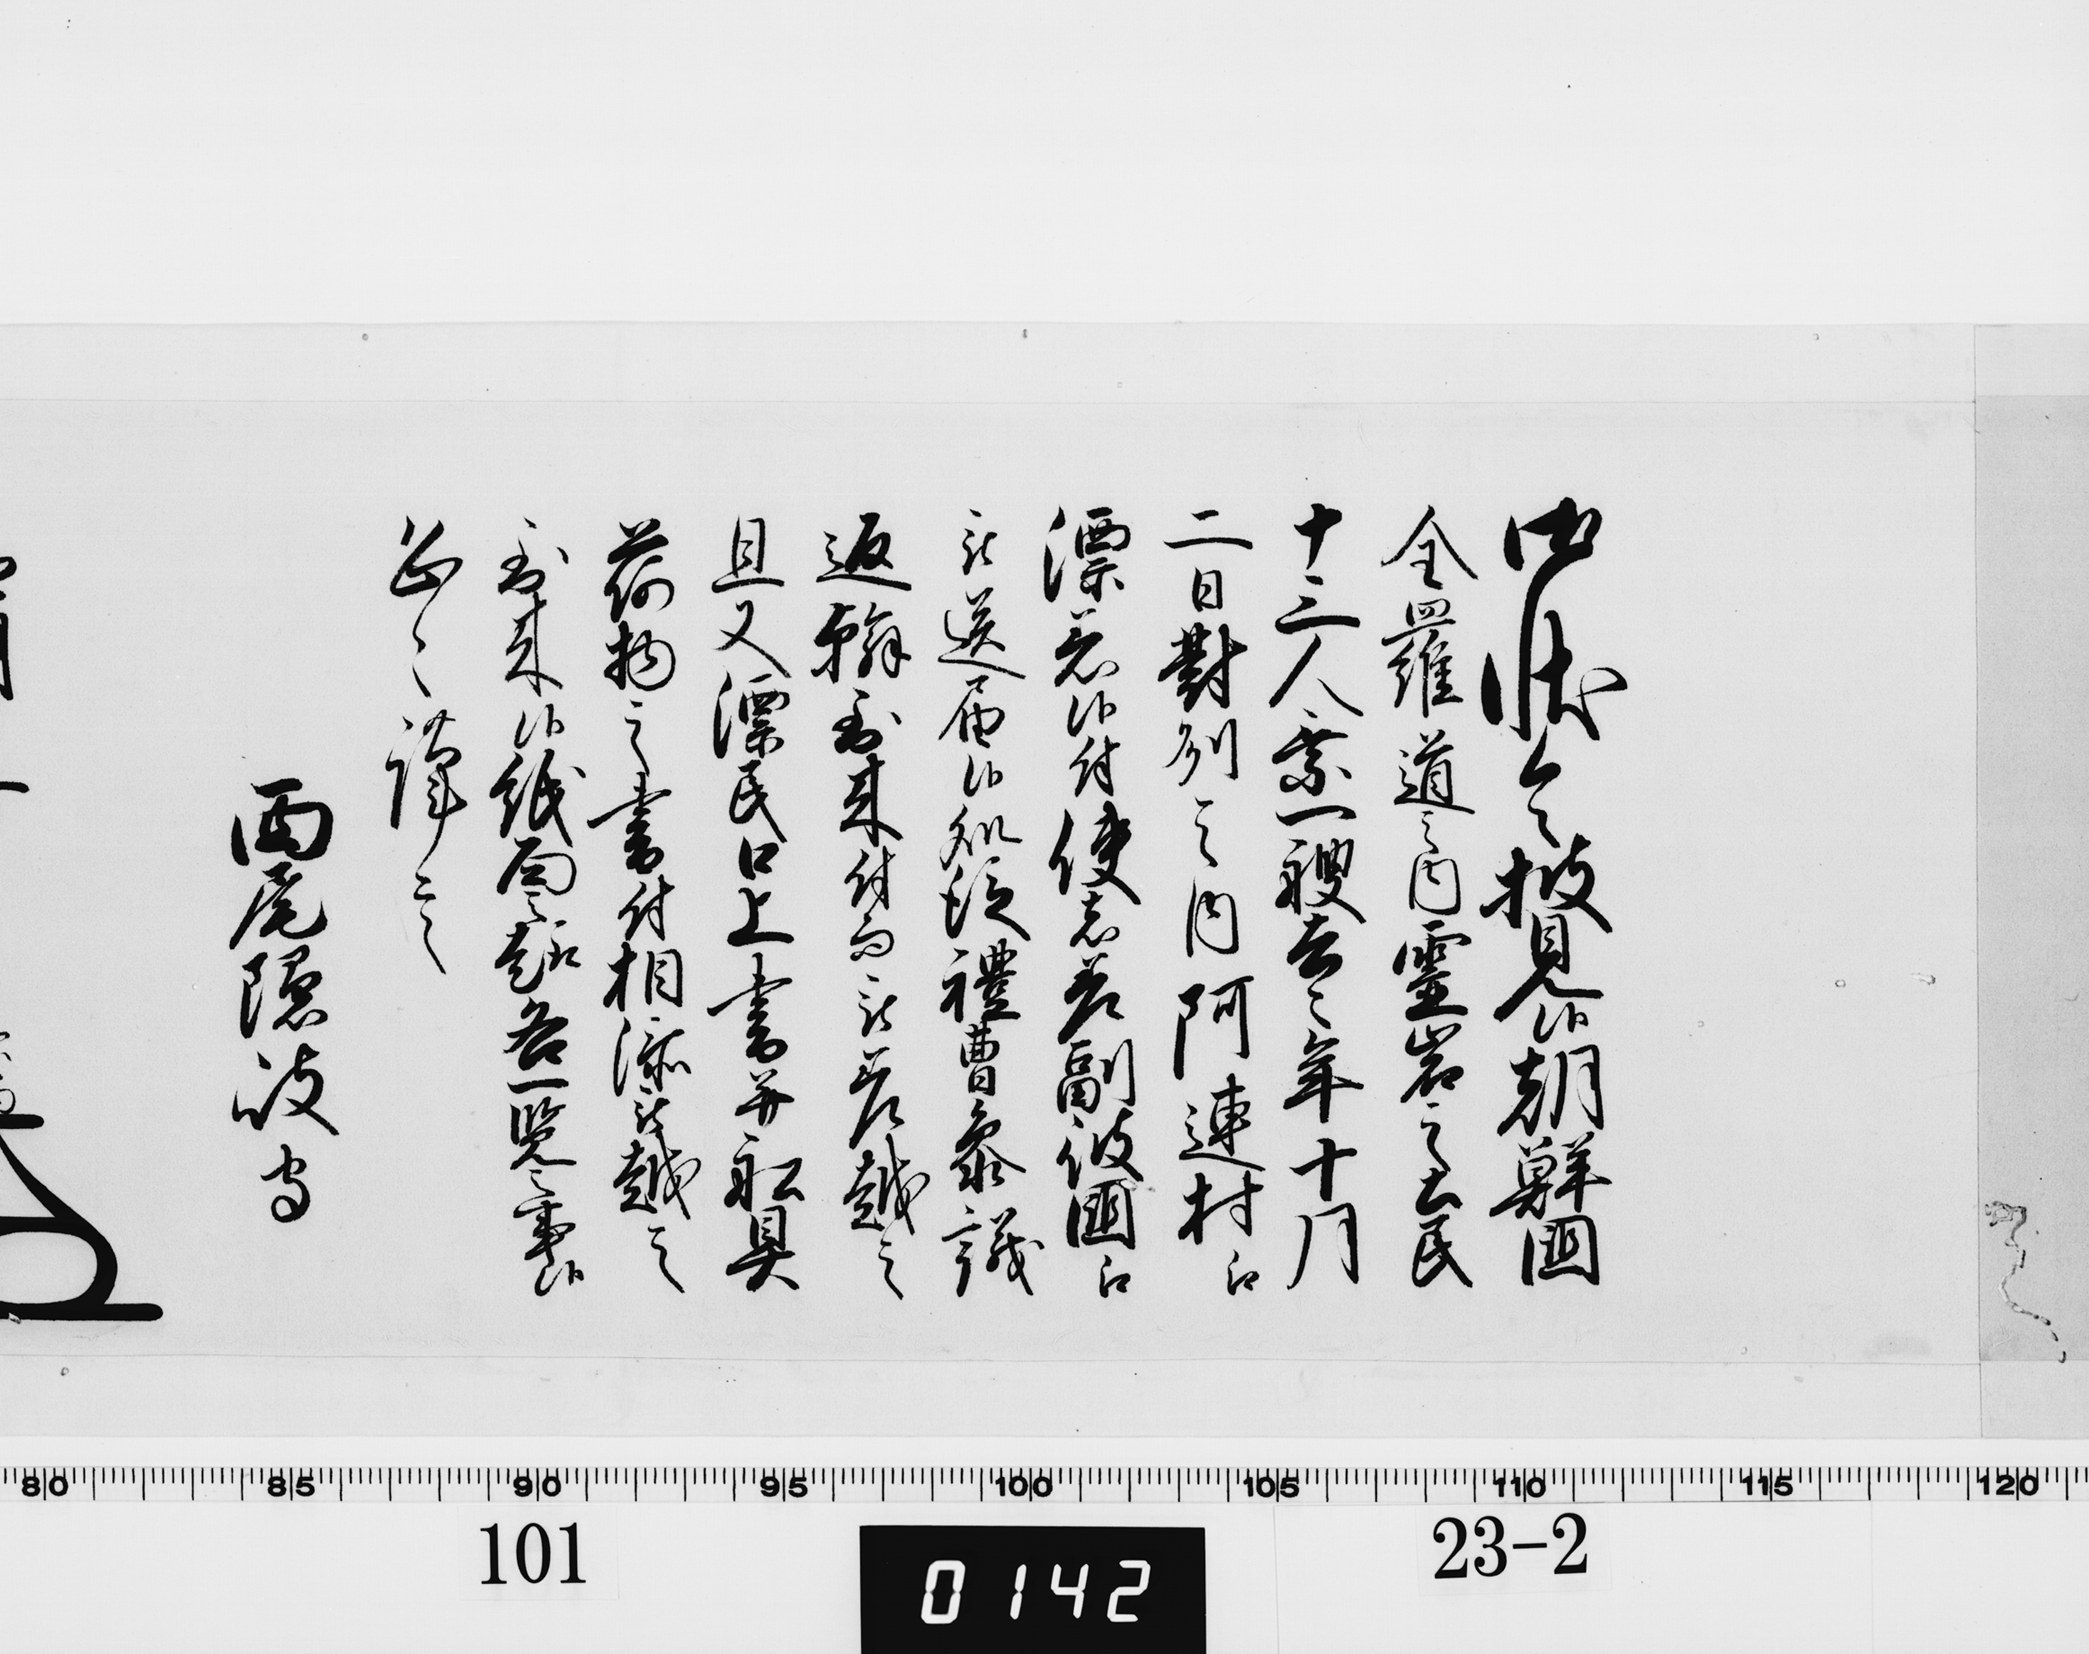 御状令披見候朝鮮国
全羅道之内霊岩之土民
十三人乗一艘去々年十月
二日對州之内阿連村江
漂着候付使者差副彼国江
被送届候處従禮曹参議
返翰到来付而被差越之
且又漂民口上書并船具
荷物之書付相添被越之
到来候紙面之趣各一覧之事候
恐々謹言
西尾隠岐守
80 85 90 95 100 105 110 115 120
101
0142
23-2